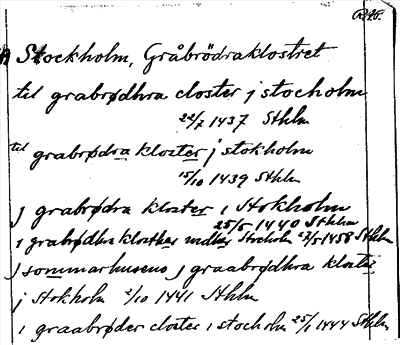 R 16.
Stockholm, Gråbrödraklostret
til grabrødhra closter j stocholm
22/7 1437 Sthlm
til grabrødra kloster j stokholm
15/10 1439 Sthlm
j grabrødra kloster i Stokholm
25/5 1440 Sthlm
i grabrødhra klosther Stocholm 27/5 1458 Sthlm
j sommarhuseno j graabrødhra kloster
j Stokholm 2/10 1441 Sthlm
i graabrøder closter i stocholm 25/1 1444 Sthlm